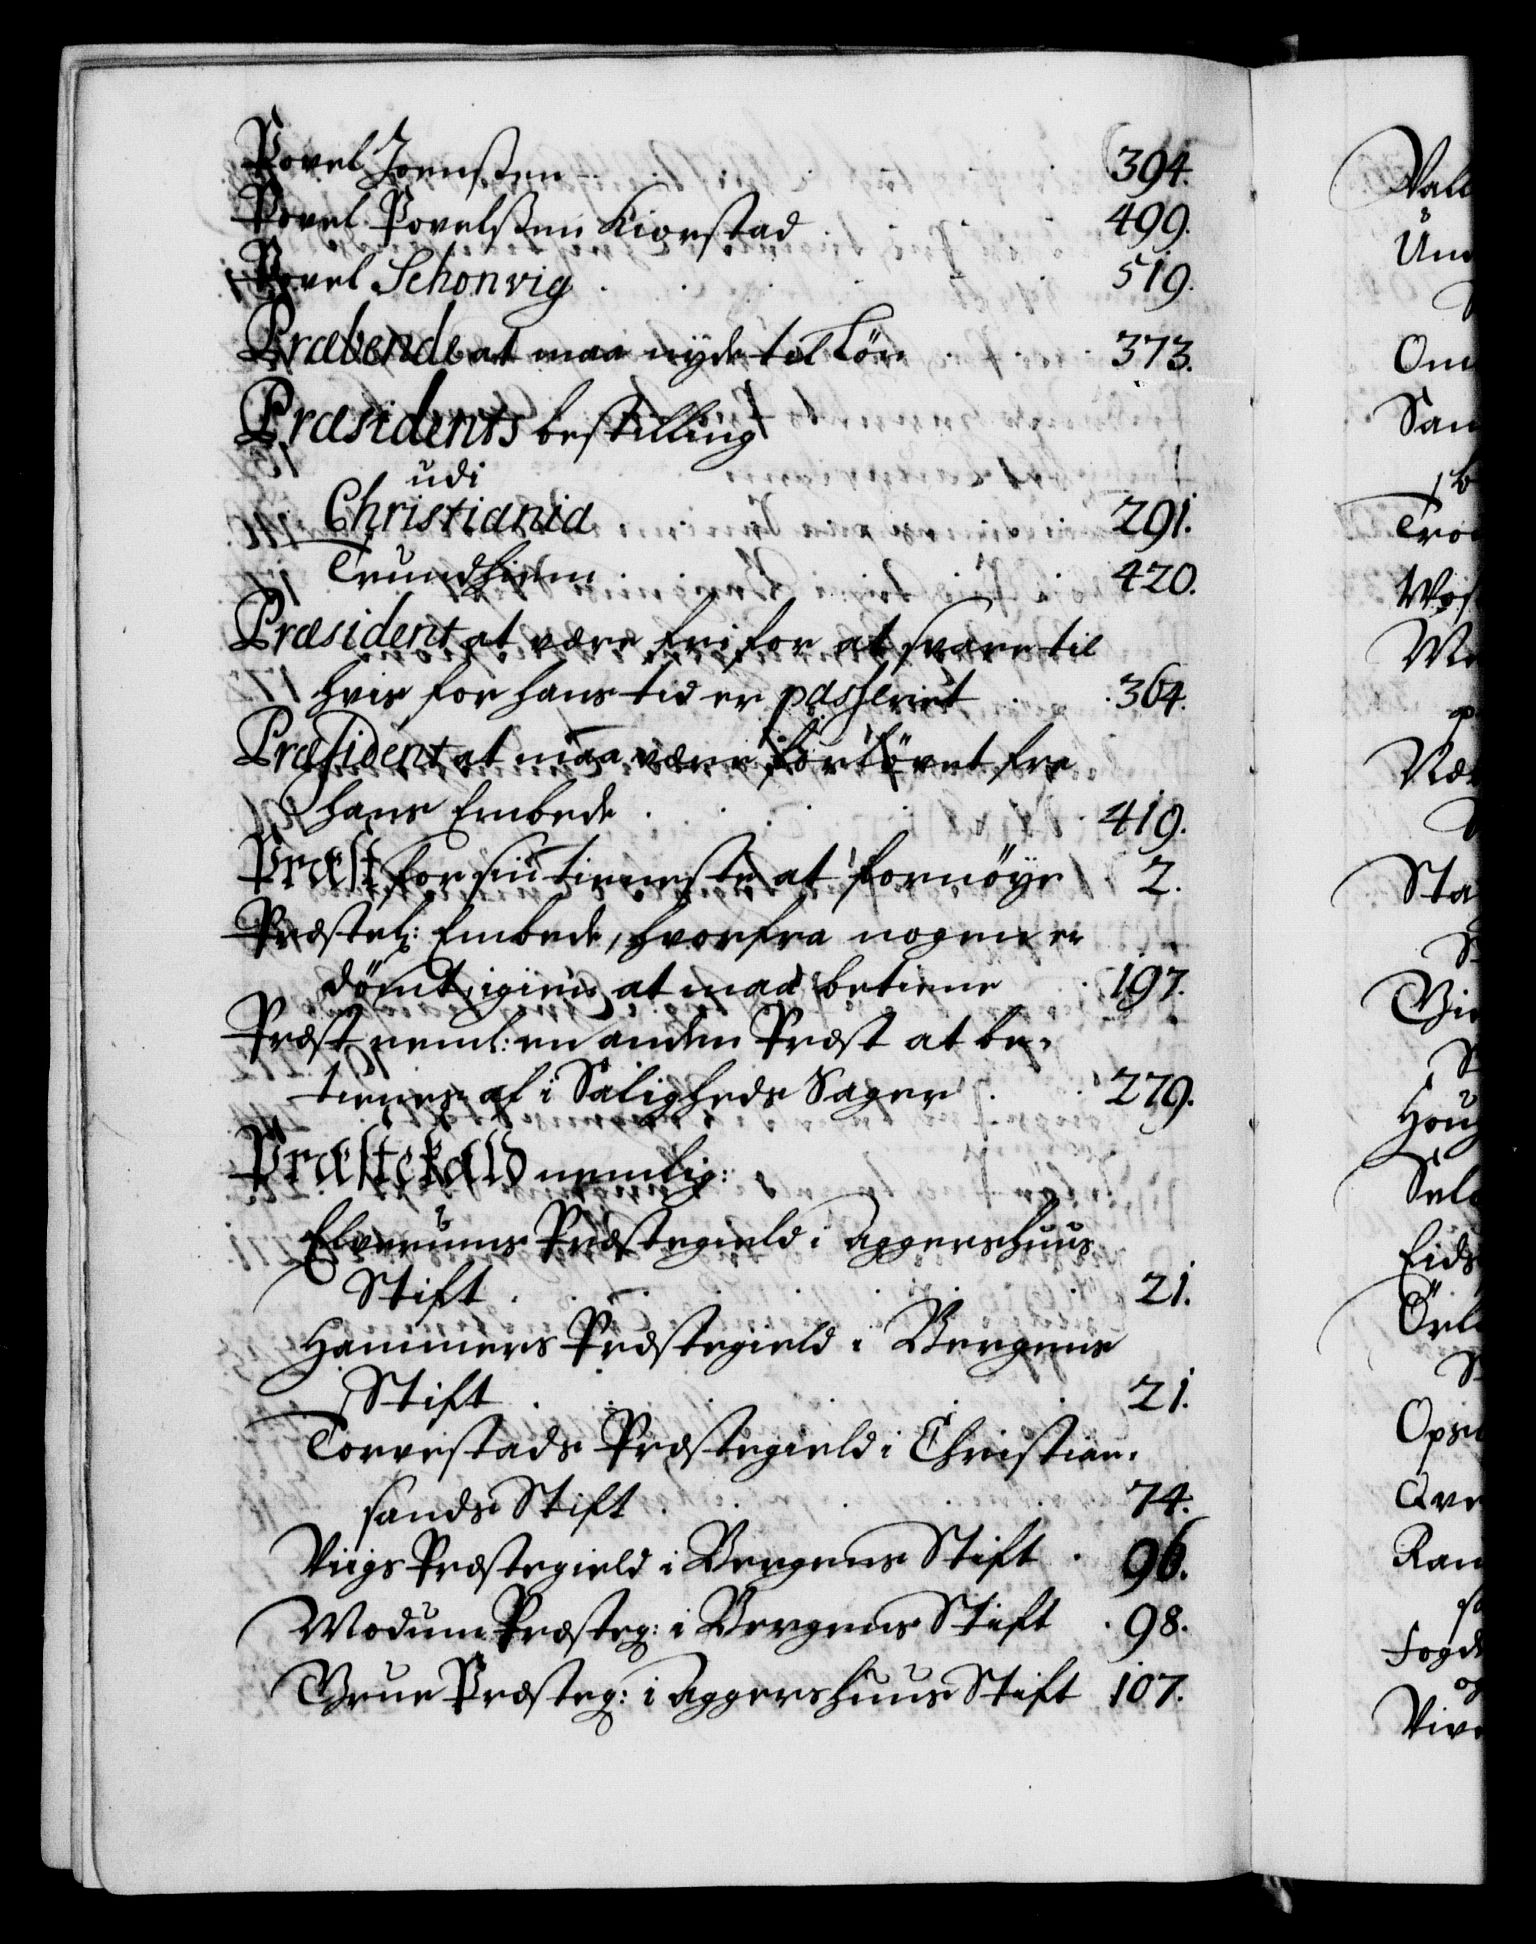 Povel Joensßen . . . 394.
Povel Povelsßen Kiorstad 499.
Povel Schonvig . . . 519.
Præbende at maa nyde til Løn . . . 373.
Præsidents bestilling
udi
Christiania . . . 291.
Trundhiem . . . 420.
Præsident at være fri for at svare til
hvis for hans tid er passerert . . 364.
Præsident at maa være forløvet fra
hans Embede . . . 419.
Præst for sin tieneste at fornøye 2.
Præstel: Embede, hvorfra nogen er
dømt, igien at maa betiene . 197.
Præst neml: en anden Præst at be-
tienes af i Saligheds Sager . . 279.
Præstekald nemlig:
Elverums Præstegield i Aggershuus
Stift . . . 21.
Hammers Præstegield i Bergens
Stift . . . 21.
Torvestads Præstegield i Christian-
sands Stift . . . 74.
Viigs Præstegield i Bergens Stift . 96.
Modum Præsteg: i Bergens Stift . 98.
Grue Præsteg: i Aggershuus Stift 107.